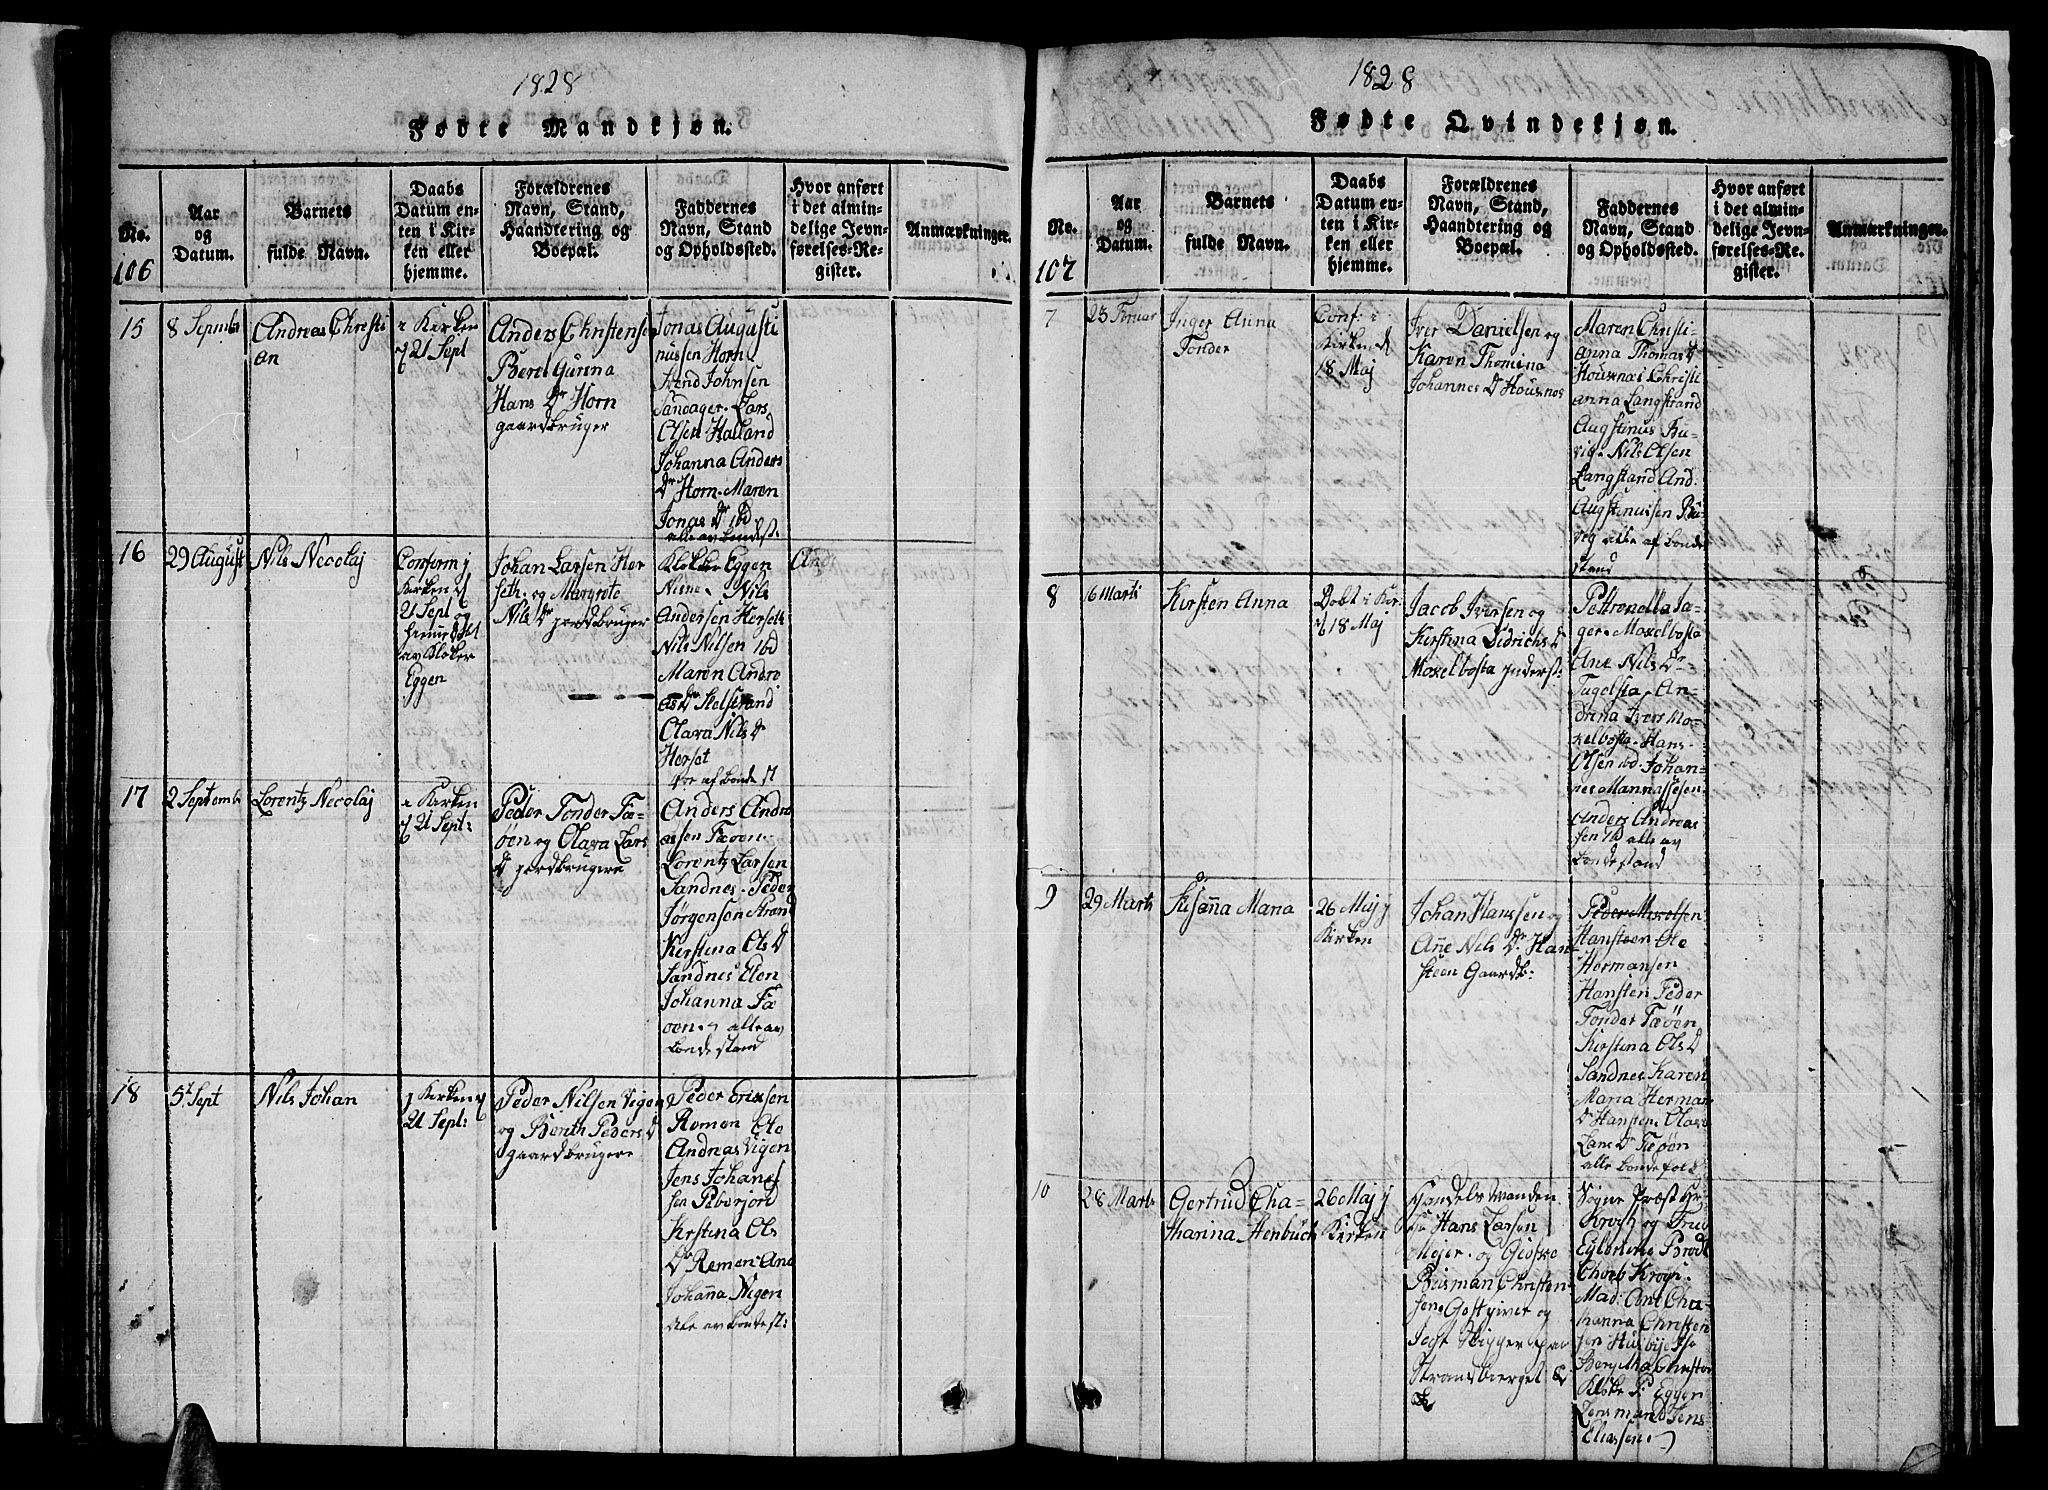 1828
Fødte Mandkjøn.
No.
106
Aar
og
Datum.
Barnets
fulde Navn.
Daabs
Datum en-
ten i Kir-
ken eller
hjemme.
Forældrenes
Navn, Stand,
Haandtering og
Boepæl.
Faddernes
Navn, Stand
og Opholdssted.
Hvor anført
i det almin-
delige Jevn-
førelses-Re-
gister.
Anmærkninger.
15
8 Septmbr
Andreas Christi
an
i Kirken
d 21 Sept
Anders Christense
Beret Gurina
Hans Dr Horn
gaardbruger
Jonas Augusti
nussen Horn
Johnsen
Sandager. Lars
Olsen Halland
Johanna Anders
Dr Horn. Maren
Jonas Dr ibd
alle av bondest:
16
29 August
Nils Necolaj
Conferm j
Kirken d
21 Sept og
hieme
av Kloker
Eggen
Johan Larsen Her
seth. og Margrete
Nils Dr jordbruger
Klokker Eggen
Nils
Andersen Herseth
Nils Nilsen ibd
Maren Andre
as Dr
Olava Nils D
Herset
af bonde st
17
2 Septemb
Lorentz Necolaj
i Kirken
d 21 Sept:
Peder Tonder Fæ-
øen og Olava Lars
D jordbrugere
Anders Andre
asen Fæøen.
Lorentz Larsen
Sandnes. Peder
Jørgensen Strand
Kerstina Ols D
Sandnes Elen
Johanna Fæ
øen. alle av
bonde stand
18
5t Sept
Nils Johan
j Kirken d
21 Sept:
Peder Nilsen Vigen
og Bereth Peders D
gaardbrugere
Peder Erixsen
Remen Ole
Andreas Vigen
Jens Johane
sen
Kerstina Ols
Dr Remen. Ana
Johanna Vigen
Ale av bonde st:
1828
Fødte Qvindekjøn.
No.
107
Aar
og
Datum.
Barnets
fulde Navn.
Daabs
Datum en-
ten i Kir-
ken eller
hjemme.
Forældrenes
Navn, Stand,
Haandtering og
Boepæl.
Faddernes
Navn, Stand
og Opholdssted.
Hvor anført
i det almin-
delige Jevn-
førelses-Re-
gister.
Anmærkninger.
7
23 Feruar
Inger Anna
Tonder
Conf: i
Kirken d
18 Maj
Iver Danielsen og
Karen Thomina
Johannes D Housnes
Maren Christi
anna Thomas D
Housnæs Christi
anna Langstrand
Augstinus Bu-
vig. Nils Olsen
Langstand And.
Augstinussen Bu-
vig alle af bonde
stand
8
16 Marts
Kirsten Anna
Dobt i Kir
d 18 Maj
Jacob Iversen og
Kirstina Didrichs D
Moxelbosta
Pettronella Ja-
ger. Moxelbosta
Ane Nils Dr
An-
drina Ivers Mo-
xelbosta. Hans
Olsen ibd. Johan-
nes Mannassesen
Anders Andreas
sen ibd alle av
bondestand
9
29 Marts
Susanna Maria
26 Maj j
Kirken
Johan Hanssen og
Ane Nils Dr. Han
steen Gaardb:
Peder Mixelsen
Hansteen Ole
Hermansen
Hansten Peder
Tonder Fæøen
Kirstina Ols D
Sandnes Karen
Maria Herman
Dr Hansten. Olava
Lars Dr Fæøen
alle bondefolk
10
28 Marts
Gertrud Cha-
tharina Stenbuch
26 Maj j
Kirken
Handelsmanden
Hans Larsen
Mejer. og
Busman Christen
sen. Gestgiver og
Jegt
Strandbierget
Sogne Præst Hr
Krogh og Frue
Brodt
Krogh.
Mad: Ane Cha-
tharina Christen
sen Husbye
Berg
Kloke P: Eggen
Lensmand Jens
Eliassen.